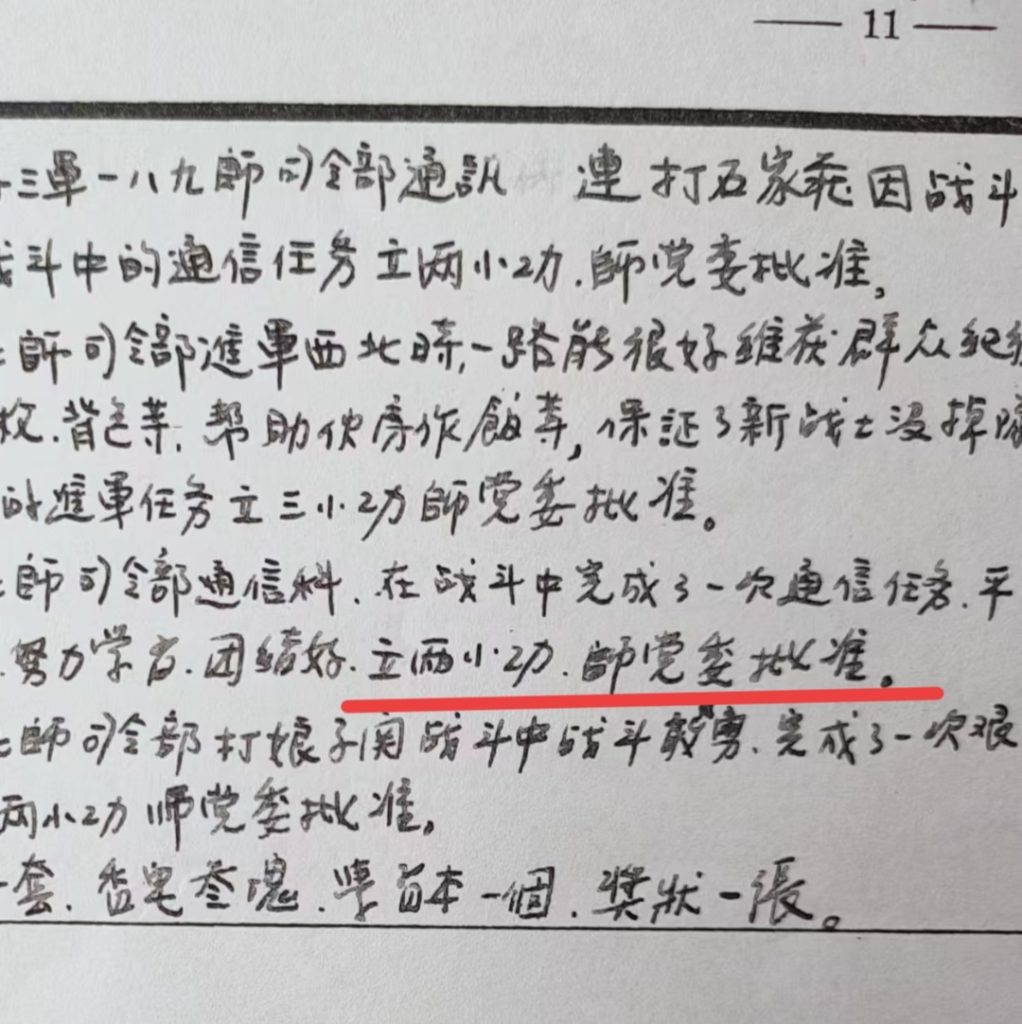 — 11 —
三軍一八九師司令部通訊 連 打石家莊因战斗
斗中的通信任务立两小功.師党委批准,
師司令部進軍西北時,一路能很好維护群众纪
枚.背包等.帮助伙房作飯等,保証了新战士没掉隊
的進軍任务立三小功師党委批准。
師司令部通信科.在战斗中完成了一次通信任务.平
.努力学習.团结好.立两小功.師党委批准。
師司令部打娘子関战斗中战斗毅勇.完成了一次艰
两小功师党委批准。
一套.香皂叁塊.學習本一個.獎狀一張。